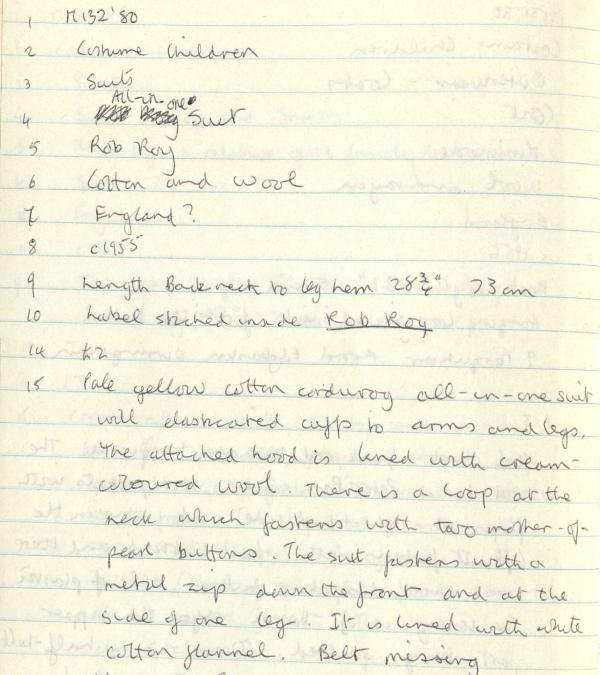 1 M132'80
2 Costume Children
3 Suits
All-in-one
4 Suit
5 Rob Roy
6 Cotton and wool
7 England?
8 c1955
9 Length Back neck to leg hem 28 3/4" 73 cm
10 Label stiched inside Rob Roy
14 £2
15 Pale yellow cotton corduroy all-in-one suit
with elasticated cuffs to arms and legs.
The attached hood is lined with cream-
coloured wool. There is a loop at the
neck which fastens with two mother-of-
pearl buttons. The suit fastens with a
metal zip down the front and at the
side of one leg. It is lined with white
cotton flannel. Belt missing